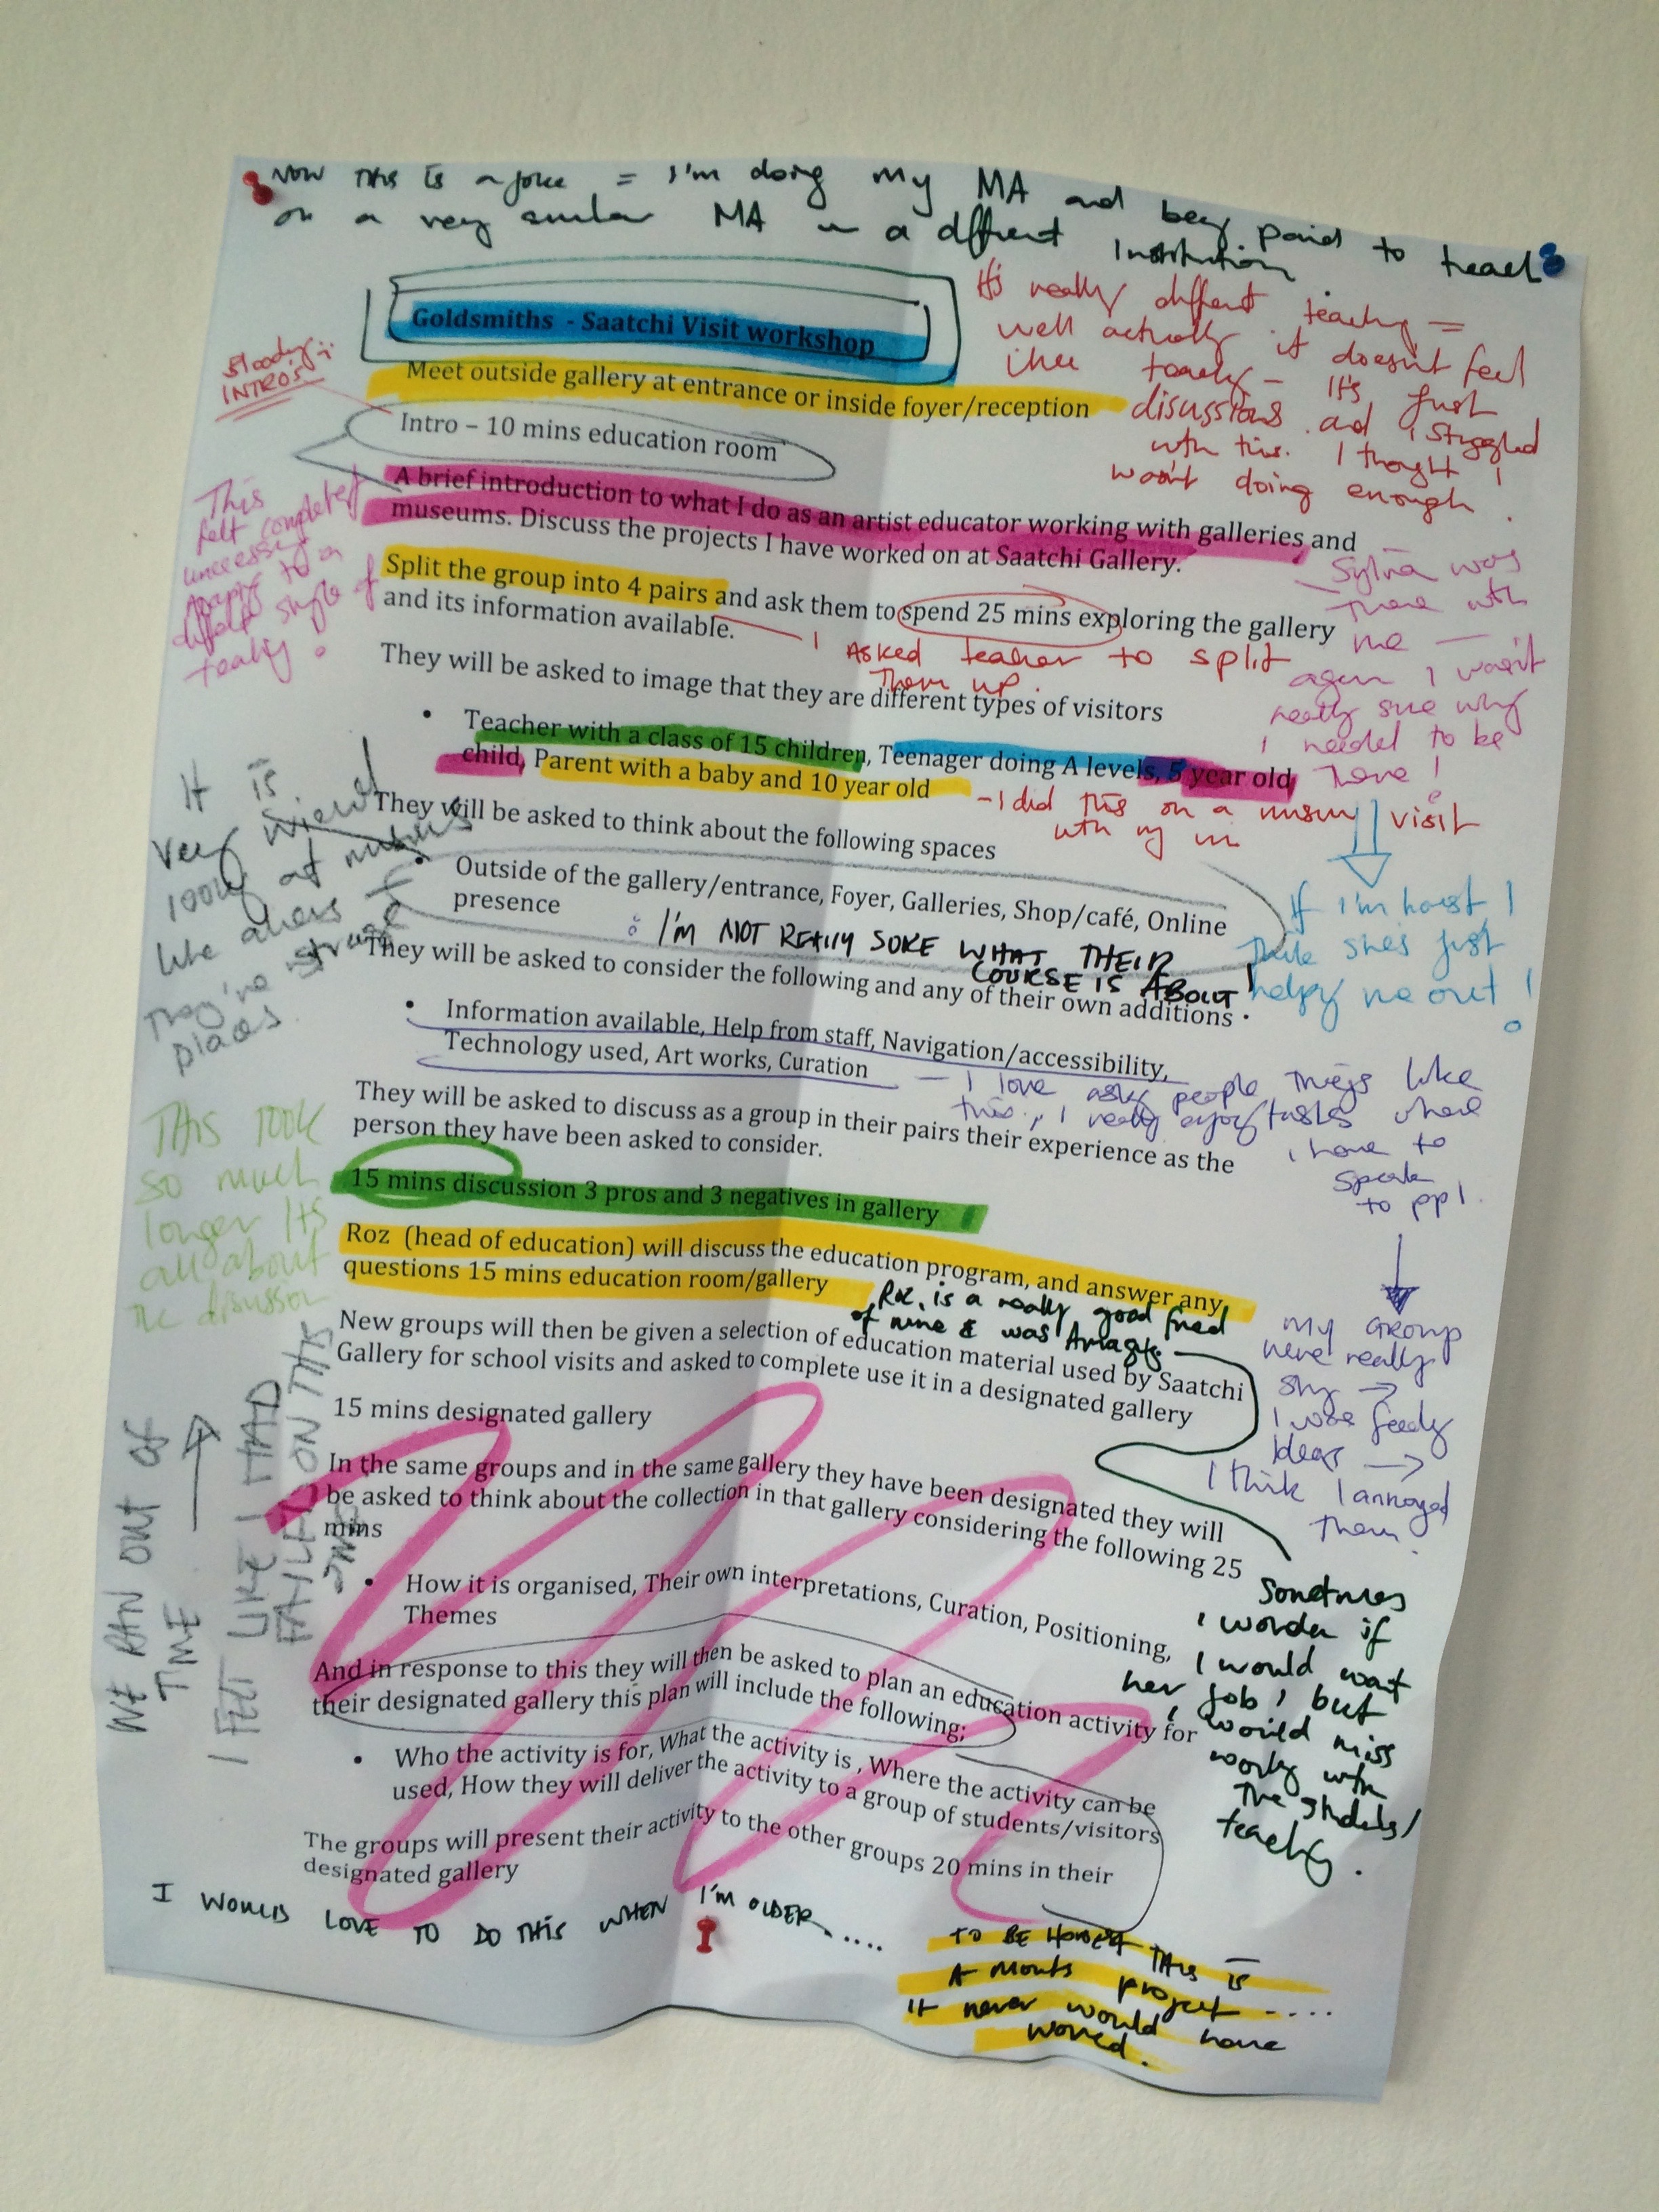 NOW THIS IS a joke = I'm doing my MA and being paid to teach
on a very similar MA in a different Institution.
Goldsmiths - Saatchi Visit workshop
It's really different teaching =
well actually it doesn't feel
like teaching - It's just
discussions and I struggled
with this. I thought I
wasn't doing enough.
Bloody
INTRO's
Meet outside gallery at entrance or inside foyer/reception
Intro – 10 mins education room
A brief introduction to what I do as an artist educator working with galleries and
museums. Discuss the projects I have worked on at Saatchi Gallery.
This
felt completely
to a
style of
teaching.
Sylvia was
there with
me —
again I wasn't
really sure why
I needed to be
here!
Split the group into 4 pairs and ask them to spend 25 mins exploring the gallery
and its information available.
I Asked teacher to split
them up.
They will be asked to image that they are different types of visitors
• Teacher with a class of 15 children, Teenager doing A levels, 5 year old
child, Parent with a baby and 10 year old
- I did this on a visit
with my
If I'm honest I
think she's just
helping me out!
It is
very wierd
looking at museums
like
They're strange
places
They will be asked to think about the following spaces
• Outside of the gallery/entrance, Foyer, Galleries, Shop/café, Online
presence
: I'M NOT REALLY SURE WHAT THEIR
COURSE IS ABOUT!
They will be asked to consider the following and any of their own additions
• Information available, Help from staff, Navigation/accessibility,
Technology used, Art works, Curation
— I love asking people things like
this., I really enjoy tasks where
I have to
speak
to ppl.
They will be asked to discuss as a group in their pairs their experience as the
person they have been asked to consider.
THIS TOOK
so much
longer Its
all about
the discussion
15 mins discussion 3 pros and 3 negatives in gallery
Roz (head of education) will discuss the education program, and answer any
questions 15 mins education room/gallery
Roz is a really good friend
of mine & was Amazing.
My GROUP
were really
shy →
I was feeding
Ideas →
I think I annoyed
them.
New groups will then be given a selection of education material used by Saatchi
Gallery for school visits and asked to complete use it in a designated gallery
15 mins designated gallery
WE RAN OUT OF
TIME
I FELT LIKE I HAD
FAILED ON THIS
ONE
In the same groups and in the same gallery they have been designated they will
be asked to think about the collection in that gallery considering the following 25
mins
• How it is organised, Their own interpretations, Curation, Positioning,
Themes
Sometimes
I wonder if
I would want
her job, but
I would miss
working with
the students/
teaching.
And in response to this they will then be asked to plan an education activity for
their designated gallery this plan will include the following;
• Who the activity is for, What the activity is , Where the activity can be
used, How they will deliver the activity to a group of students/visitors
The groups will present their activity to the other groups 20 mins in their
designated gallery
I WOULD LOVE TO DO THIS WHEN I'm OLDER.....
TO BE HONEST THIS IS
A Months project ....
It never would have
worked.